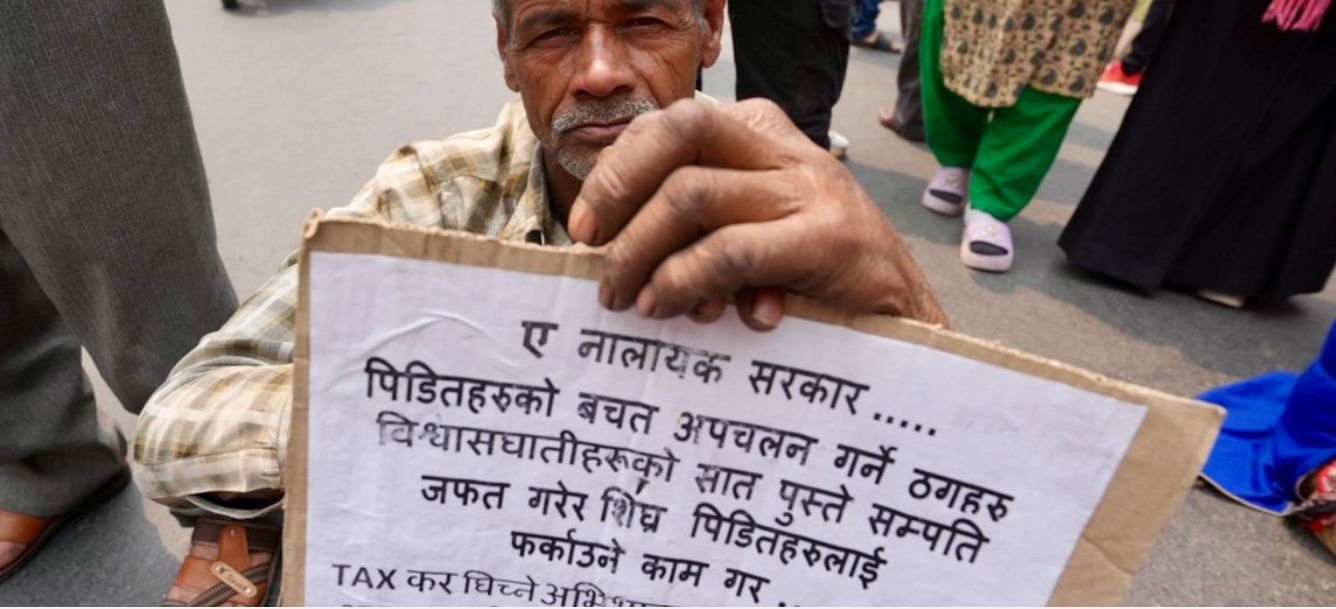 ए नालायक सरकार.....
पिडितहरुको बचत अपचलन गर्ने ठगहरु
विश्वासघातीहरूको सात पुस्ते सम्पति
जफत गरेर शिघ्र पिडितहरुलाई
फर्काउने काम गर ..
TAX कर घिच्ने